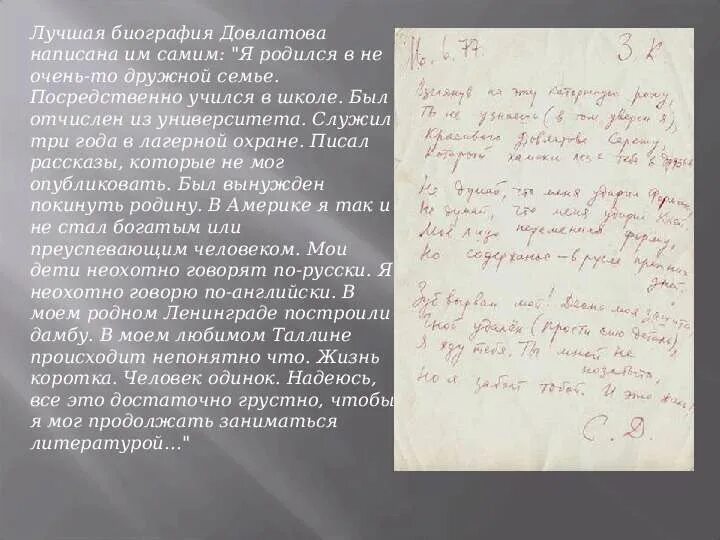 Лучшая биография Довлатова
написана им самим: "Я родился в не
очень-то дружной семье.
Посредственно учился в школе. Был
отчислен из университета. Служил
три года в лагерной охране. Писал
рассказы, которые не мог
опубликовать. Был вынужден
покинуть родину. В Америке я так и
не стал богатым или
преуспевающим человеком. Мои
дети неохотно говорят по-русски. Я
неохотно говорю по-английски. В
моем родном Ленинграде построили
дамбу. В моем любимом Таллине
происходит непонятно что. Жизнь
коротка. Человек одинок. Надеюсь,
все это достаточно грустно, чтобы
я мог продолжать заниматься
литературой…"
6. 77. З. К
Взглянув на эту каторжную рожу,
Ты не узнаешь (в том уверен я),
Красивого Довлатова Сережу,
Который лез к тебе в
Не думай, что меня ударил
Не думай, что меня ударил
Мое лицо переменило форму,
Но содержанье – в русле прежних
дней.
Зуб вырван мой! Десна моя зашита
Гной удалён (прости сию деталь)
Я жду тебя. Ты мной не
позабыта,
Но я забыт тобой. И это жаль!
С. Д.